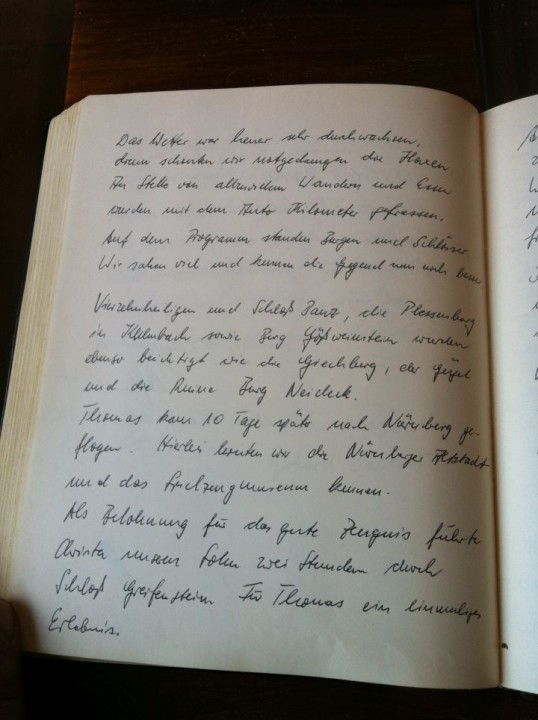 Das Wetter war heuer sehr durchwachsen,
drum schonten wir notgedrungen die Haxen.
An Stelle von allzuvielem Wandern und Essen
wurden mit dem Auto Kilometer gefressen.
Auf dem Programm standen Burgen und Schlösser
Wir sahen viel und kennen die Gegend nun noch besser
Vierzehnheiligen und Schloß Banz, die Plassenburg
in Kulmbach sowie Burg Gößweinstein wurden
ebenso besichtigt wie die Giechburg, der Gügel
und die Ruine Burg Neideck.
Thomas kam 10 Tage später nach Nürnberg ge-
flogen. Hierbei lernten wir die Nürnberger Altstadt
und das Spielzeugmuseum kennen.
Als Belohnung für das gute Zeugnis führte
Christa unseren Sohn zwei Stunden durch
Schloß Greifenstein Für Thomas ein einmaliges
Erlebnis.